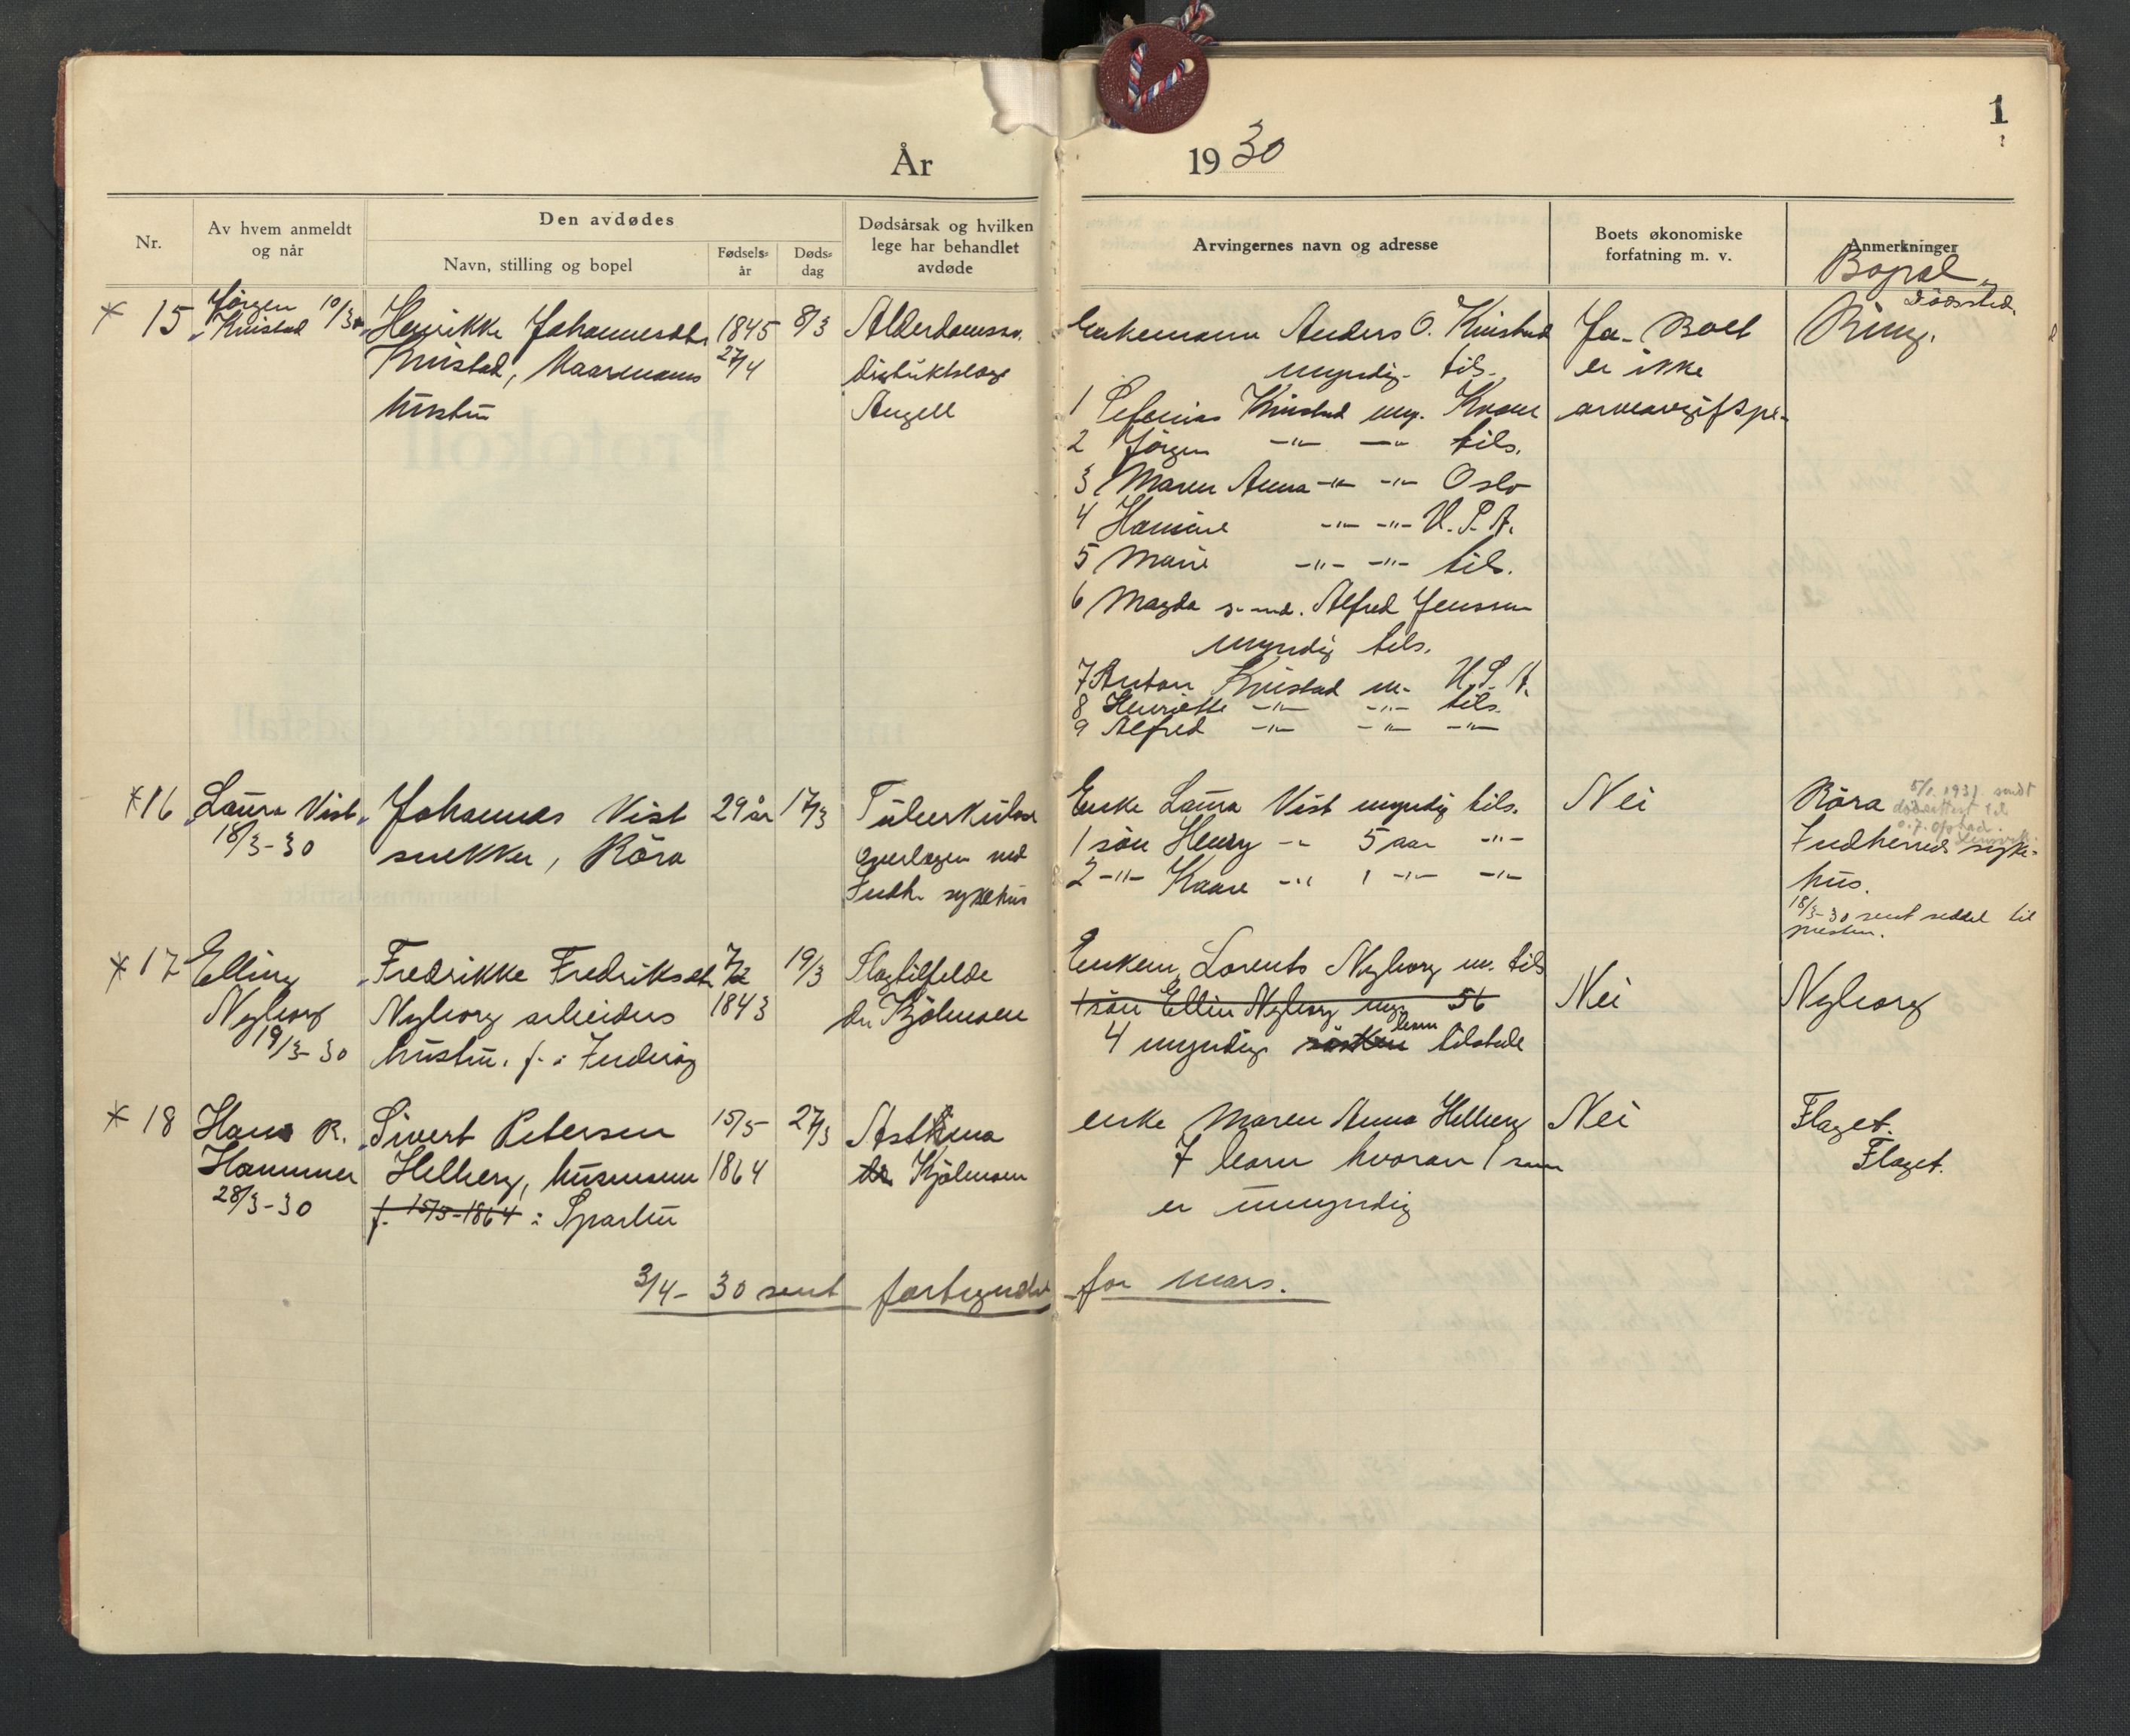 1
År 1930
Nr.
Av hvem anmeldt
og når
Den avdødes
Navn, stilling og bopel
Fødsels-
år
Døds-
dag
Dødsårsak og hvilken
lege har behandlet
avdøde
Arvingernes navn og adresse
Boets økonomiske
forfatning m. v.
Anmerkninger
Bopel
Dödssted.
* 15
Jörgen
Kvistad 10/3 30
Henrikke Johannesdtr
Kvistad, Kaarmanns
hustru
1845
27/4
8/3
Alderdomssv.
Distriktslæge
Angell
Enkemann Anders O. Kvistad
myndig. tils.
1 Sefanias Kvistad myn. Kvam
2 Jörgen -"- -"- tils.
3 Maren Anna -"- -"- Oslo
4 Hansine -"- -"- U.S.A.
5 Marie -"- -"- tils.
6 Magda g. m. Alfred Jenssen
myndig tils.
7 Anton Kvistad m. U.S.A.
8 Henriette -"- -"- tils.
9 Alfred -"- -"- -"-
Ja - Boet
er ikke
arveavgiftspl.
Ring.
* 16
Laura Vist
18/3-30
Johannes Vist
snekker, Röra
29 år
17/3
Tuberkulose
overlægen ved
Indh. sykehus
Enke Laura Vist myndig tils.
1 sön Henry -"- 5 aar -"-
2 -"- Kaare -"- 1 -"- -"-
Nei
Röra
5/1. 1931 sendt
dödsattest til
Indherreds syke-
hus.
18/3-30 sent seddel til
presten.
* 17
Elling
Nyborg
19/3-30
Fredrikke Fredriksdt.
Nyborg arbeiders
hustru. f. i Inderöy
1843
19/3
Slagtilfelde
dr. Kjölmoen
Enkem. Lorents Nyborg m. tils
1 sön Ellin Nyborg myn. 56
4 myndige søsken barn tilstede
Nei
Nyborg
* 18
Hans R.
Hammer
28/3-30
Sivert Petersen
Helberg, husmann
f. 15/5-1864 i Sparbu
15/5
1864
27/3
Asthma
dr. Kjölmoen
enke Maren Anna Helberg
7 barn hvorav 1 som
er umyndig
Nei
Flaget.
Flaget.
3/4-30 sent fortegnelse for mars.